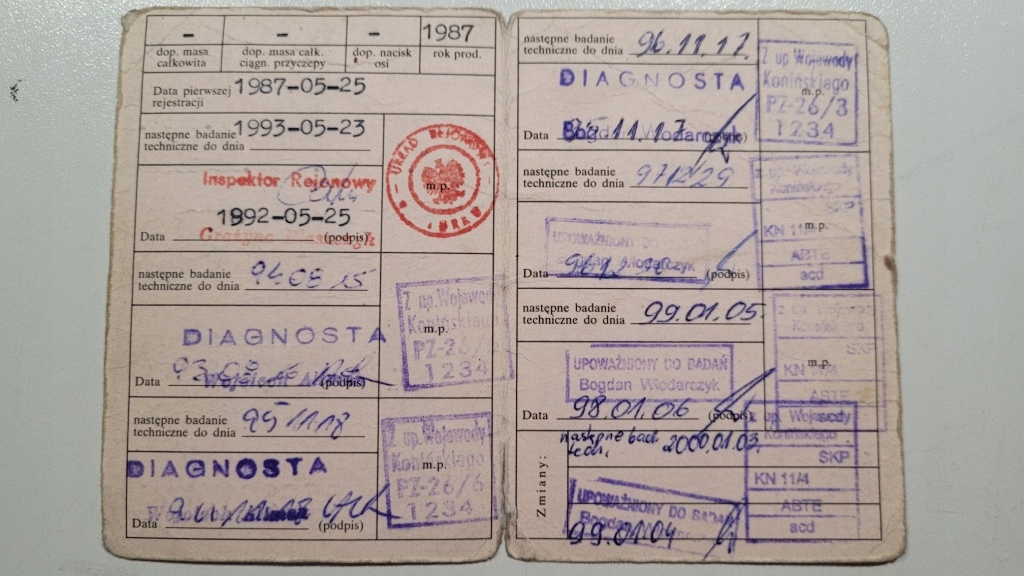 - - - 1987
dop. masa całkowita
dop. masa całk. ciągn. przyczepy
dop. nacisk osi
rok prod.
Data pierwszej rejestracji 1987-05-25
następne badanie techniczne do dnia 1993-05-23
URZĄD REJONOWY
m.p.
Inspektor Rejonowy
1992-05-25
Data (podpis)
następne badanie techniczne do dnia 94 08 15
Z up. Wojewody
Konińskiego
PZ-26/6
1234
m.p.
DIAGNOSTA
Wojciech
Data (podpis)
następne badanie techniczne do dnia 95 11 18
Z up. Wojewody
Konińskiego
PZ-26/6
1234
m.p.
DIAGNOSTA
Data (podpis)
następne badanie techniczne do dnia 96.11.17
Z up Wojewody
Konińskiego
PZ-26/3
1234
m.p.
DIAGNOSTA
Bogdan Włodarczyk
Data 11.17
następne badanie techniczne do dnia 97 12 29
Z up. Wojewody
Konińskiego
SKP
KN 11/4
m.p.
ABTE
acd
UPOWAŻNIONY DO BADAŃ
Bogdan Włodarczyk
Data (podpis)
następne badanie techniczne do dnia 99.01.05.
Z up. Wojewody
Konińskiego
SKP
KN 11/4
m.p.
ABTE
UPOWAŻNIONY DO BADAŃ
Bogdan Włodarczyk
Data 98.01.06 (podpis)
Zmiany:
następne bad. tech. 2000.01.03.
Z up. Wojewody
Konińskiego
SKP
KN 11/4
ABTE
acd
UPOWAŻNIONY DO BADAŃ
Bogdan Włodarczyk
99.01.04